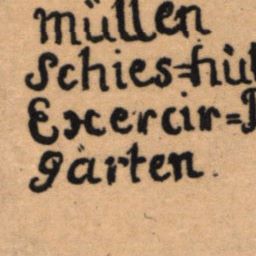 müllen
Schies=hü
Exercir=
gärten.